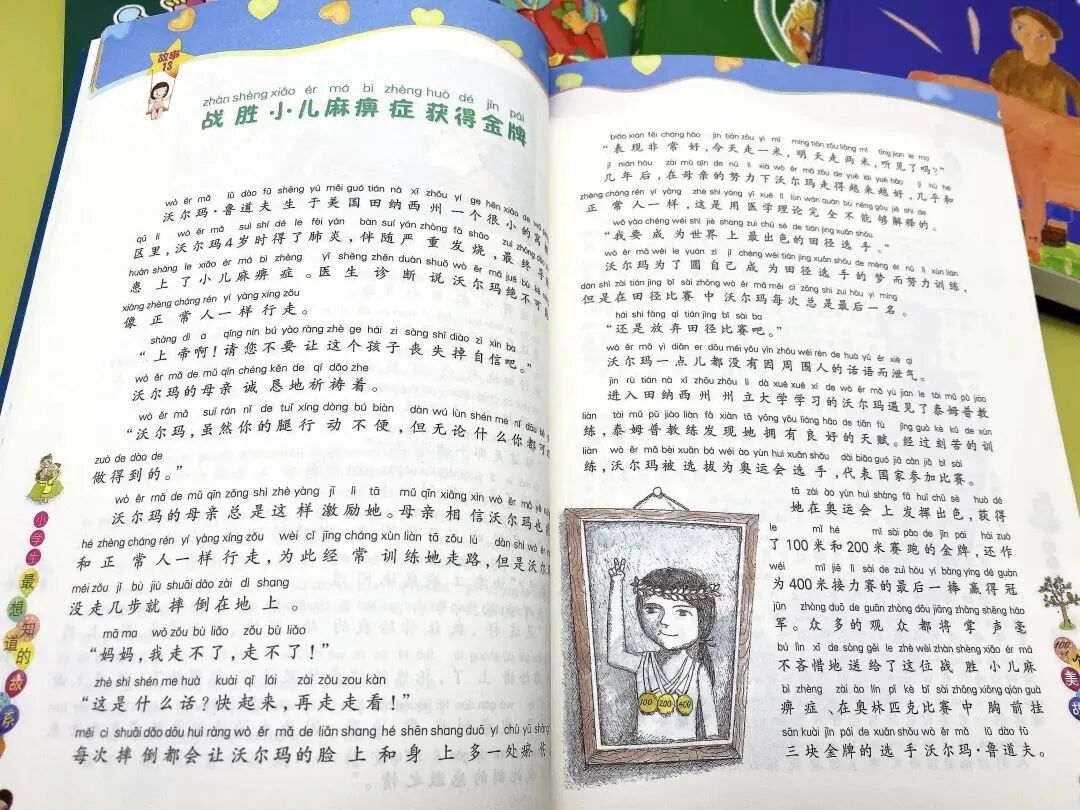 故事
13
zhàn shèng xiǎo ér má bì zhèng huò dé jīn pái
战胜小儿麻痹症获得金牌
wò ěr mǎ lǔ dào fū shēng yú měi guó tián nà xī zhōu yí ge hěn xiǎo de
沃尔玛·鲁道夫生于美国田纳西州一个很小的
qū li wò ěr mǎ suì shí dé le fèi yán bàn suí yán zhòng fā shāo zuì zhōng
区里,沃尔玛4岁时得了肺炎,伴随严重发烧,最终
huàn shàng le xiǎo ér má bì zhèng yī shēng zhěn duàn shuō wò ěr mǎ jué bù kě
患上了小儿麻痹症。医生诊断说沃尔玛绝不可
xiàng zhèng cháng rén yí yàng xíng zǒu
像正常人一样行走。
shàng dì a qǐng nín bú yào ràng zhè ge hái zi sàng shī diào zì xìn ba
“上帝啊!请您不要让这个孩子丧失掉自信吧。”
wò ěr mǎ de mǔ qīn chéng kěn de qí dǎo zhe
沃尔玛的母亲诚恳地祈祷着。
wò ěr mǎ suī rán nǐ de tuǐ xíng dòng bú biàn dàn wú lùn shén me nǐ dōu kě
“沃尔玛,虽然你的腿行动不便,但无论什么你都可
zuò de dào de
做得到的。”
wò ěr mǎ de mǔ qīn zǒng shì zhè yàng jī lì tā mǔ qīn xiāng xìn wò ěr mǎ yě
沃尔玛的母亲总是这样激励她。母亲相信沃尔玛也
hé zhèng cháng rén yí yàng xíng zǒu wèi cǐ jīng cháng xùn liàn tā zǒu lù dàn shì wò ěr
和正常人一样行走,为此经常训练她走路,但是沃尔
méi zǒu jǐ bù jiù shuāi dǎo zài dì shang
没走几步就摔倒在地上。
mā ma wǒ zǒu bù liǎo zǒu bù liǎo
“妈妈,我走不了,走不了!”
zhè shì shén me huà kuài qǐ lái zài zǒu zou kàn
“这是什么话?快起来,再走走看!”
měi cì shuāi dǎo dōu huì ràng wò ěr mǎ de liǎn shang hé shēn shang duō yí chù
每次摔倒都会让沃尔玛的脸上和身上多一处
小学生
最想知道的故
系
biǎo xiàn fēi cháng hǎo jīn tiān zǒu yì mǐ míng tiān zǒu liǎng mǐ tīng jian le ma
“表现非常好,今天走一米,明天走两米,听见了吗?”
jǐ nián hòu zài mǔ qīn de nǔ lì xià wò ěr mǎ zǒu de yuè lái yuè hǎo jī hū hé
几年后,在母亲的努力下沃尔玛走得越来越好,几乎和
zhèng cháng rén yí yàng zhè shì yòng yī xué lǐ lùn wán quán bù néng gòu jiě shì de
正常人一样,这是用医学理论完全不能够解释的。
wǒ yào chéng wéi shì jiè shang zuì chū sè de tián jìng xuǎn shǒu
“我要成为世界上最出色的田径选手。”
wò ěr mǎ wèi le yuán zì jǐ chéng wéi tián jìng xuǎn shǒu de mèng ér nǔ lì xùn liàn
沃尔玛为了圆自己成为田径选手的梦而努力训练,
dàn shì zài tián jìng bǐ sài zhōng wò ěr mǎ měi cì zǒng shì zuì hòu yì míng
但是在田径比赛中沃尔玛每次总是最后一名。
hái shi fàng qì tián jìng bǐ sài ba
“还是放弃田径比赛吧。”
wò ěr mǎ yì diǎn er dōu méi yǒu yīn zhōu wéi rén de huà yǔ ér xiè qì
沃尔玛一点儿都没有因周围人的话语而泄气。
jìn rù tián nà xī zhōu zhōu lì dà xué xué xí de wò ěr mǎ yù jian le tài mǔ pǔ jiào
进入田纳西州州立大学学习的沃尔玛遇见了泰姆普教
liàn tài mǔ pǔ jiào liàn fā xiàn tā yōng yǒu liáng hǎo de tiān fù jīng guò kè kǔ de xùn
练,泰姆普教练发现她拥有良好的天赋。经过刻苦的训
liàn wò ěr mǎ bèi xuǎn bá wéi ào yùn huì xuǎn shǒu dài biǎo guó jiā cān jiā bǐ sài
练,沃尔玛被选拔为奥运会选手,代表国家参加比赛。
tā zài ào yùn huì shàng fā huī chū sè huò dé
她在奥运会上发挥出色,获得
le mǐ hé mǐ sài pǎo de jīn pái hái zuò
了100米和200米赛跑的金牌,还作
wéi mǐ jiē lì sài de zuì hòu yí bàng yíng dé guàn
为400米接力赛的最后一棒赢得冠
jūn zhòng duō de guān zhòng dōu jiāng zhǎng shēng háo
军。众多的观众都将掌声毫
bù lìn xī de sòng gěi le zhè wèi zhàn shèng xiǎo ér má
不吝惜地送给了这位战胜小儿麻
bì zhèng zài ào lín pǐ kè bǐ sài zhōng xiōng qián guà
痹症、在奥林匹克比赛中胸前挂
sān kuài jīn pái de xuǎn shǒu wò ěr mǎ lǔ dào fū
三块金牌的选手沃尔玛·鲁道夫。
100 200 400
100
美
故